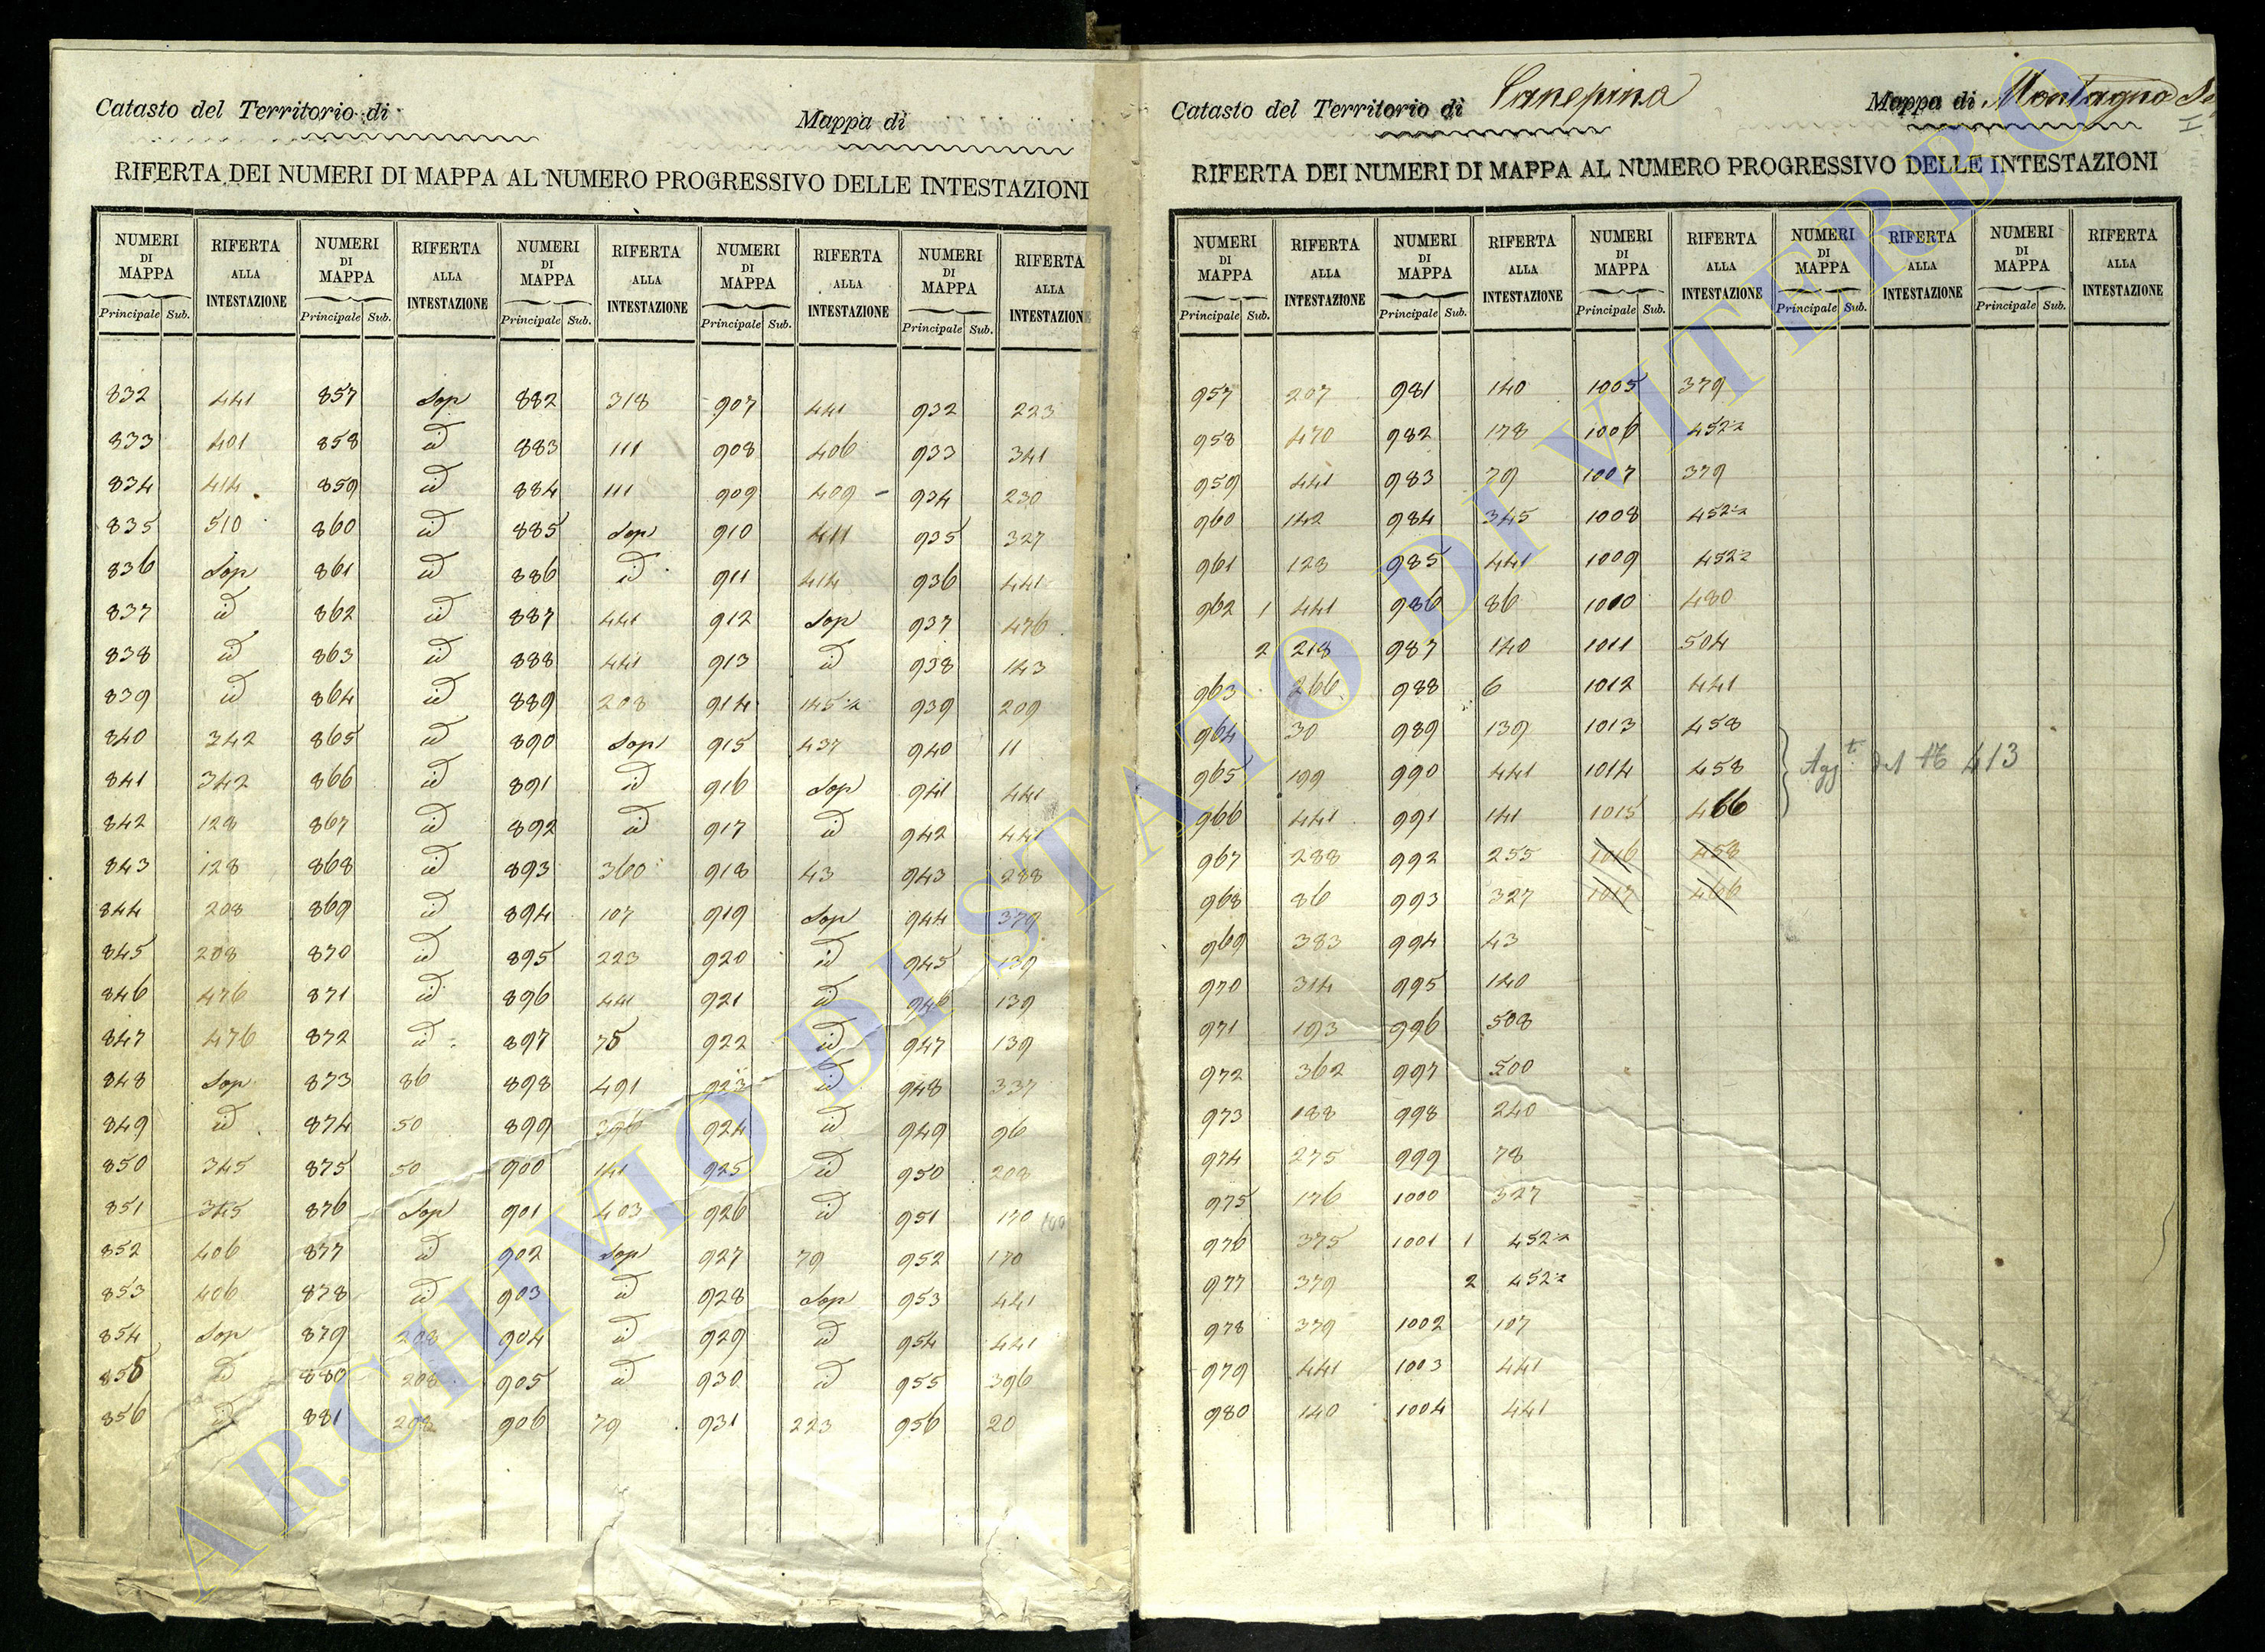 Catasto del Territorio di
Mappa di
RIFERTA DEI NUMERI DI MAPPA AL NUMERO PROGRESSIVO DELLE INTESTAZIONI
NUMERI DI MAPPA RIFERTA ALLA INTESTAZIONE NUMERI DI MAPPA RIFERTA ALLA INTESTAZIONE NUMERI DI MAPPA RIFERTA ALLA INTESTAZIONE NUMERI DI MAPPA RIFERTA ALLA INTESTAZIONE NUMERI DI MAPPA RIFERTA ALLA INTESTAZIONE
Principale Sub. Principale Sub. Principale Sub. Principale Sub. Principale Sub.
832 441 857 Sop 882 318 907 441 932 223
833 401 858 id 883 111 908 406 933 341
834 414 859 id 884 111 909 409 934 230
835 510 860 id 885 Sop 910 411 935 327
836 Sop 861 id 886 id 911 414 936 441
837 id 862 id 887 441 912 Sop 937 476
838 id 863 id 888 441 913 id 938 143
839 id 864 id 889 208 914 145 2 939 209
840 342 865 id 890 Sop 915 437 940 11
841 342 866 id 891 id 916 Sop 941 441
842 128 867 id 892 id 917 id 942 441
843 128 868 id 893 360 918 43 943 288
844 208 869 id 894 107 919 Sop 944 379
845 208 870 id 895 223 920 id 945 139
846 476 871 id 896 441 921 id 946 139
847 476 872 id 897 75 922 id 947 139
848 Sop 873 86 898 491 923 id 948 337
849 id 874 50 899 396 924 id 949 96
850 345 875 50 900 141 925 id 950 208
851 345 876 Sop 901 403 926 id 951 170
852 406 877 id 902 Sop 927 79 952 170
853 406 878 id 903 id 928 Sop 953 441
854 Sop 879 208 904 id 929 id 954 441
855 id 880 208 905 id 930 id 955 396
856 id 881 208 906 79 931 223 956 20
Catasto del Territorio di Canepina
Mappa di Montagna
I
RIFERTA DEI NUMERI DI MAPPA AL NUMERO PROGRESSIVO DELLE INTESTAZIONI
NUMERI DI MAPPA RIFERTA ALLA INTESTAZIONE NUMERI DI MAPPA RIFERTA ALLA INTESTAZIONE NUMERI DI MAPPA RIFERTA ALLA INTESTAZIONE NUMERI DI MAPPA RIFERTA ALLA INTESTAZIONE NUMERI DI MAPPA RIFERTA ALLA INTESTAZIONE
Principale Sub. Principale Sub. Principale Sub. Principale Sub. Principale Sub.
957 207 981 140 1005 379
958 470 982 178 1006 452 2
959 441 983 79 1007 379
960 142 984 345 1008 452 2
961 128 985 441 1009 452 2
962 1 441 986 86 1010 480
2 218 987 140 1011 504
963 266 988 6 1012 441
964 30 989 139 1013 458
965 199 990 441 1014 458
966 441 991 141 1015 466
Agg.ti del N 413
967 288 992 255 1016 458
968 86 993 327 1017 466
969 383 994 43
970 314 995 140
971 193 996 508
972 362 997 500
973 188 998 240
974 275 999 78
975 176 1000 327
976 375 1001 1 452 2
977 379 2 452 2
978 379 1002 107
979 441 1003 441
980 140 1004 441
ARCHIVIO DI STATO DI VITERBO